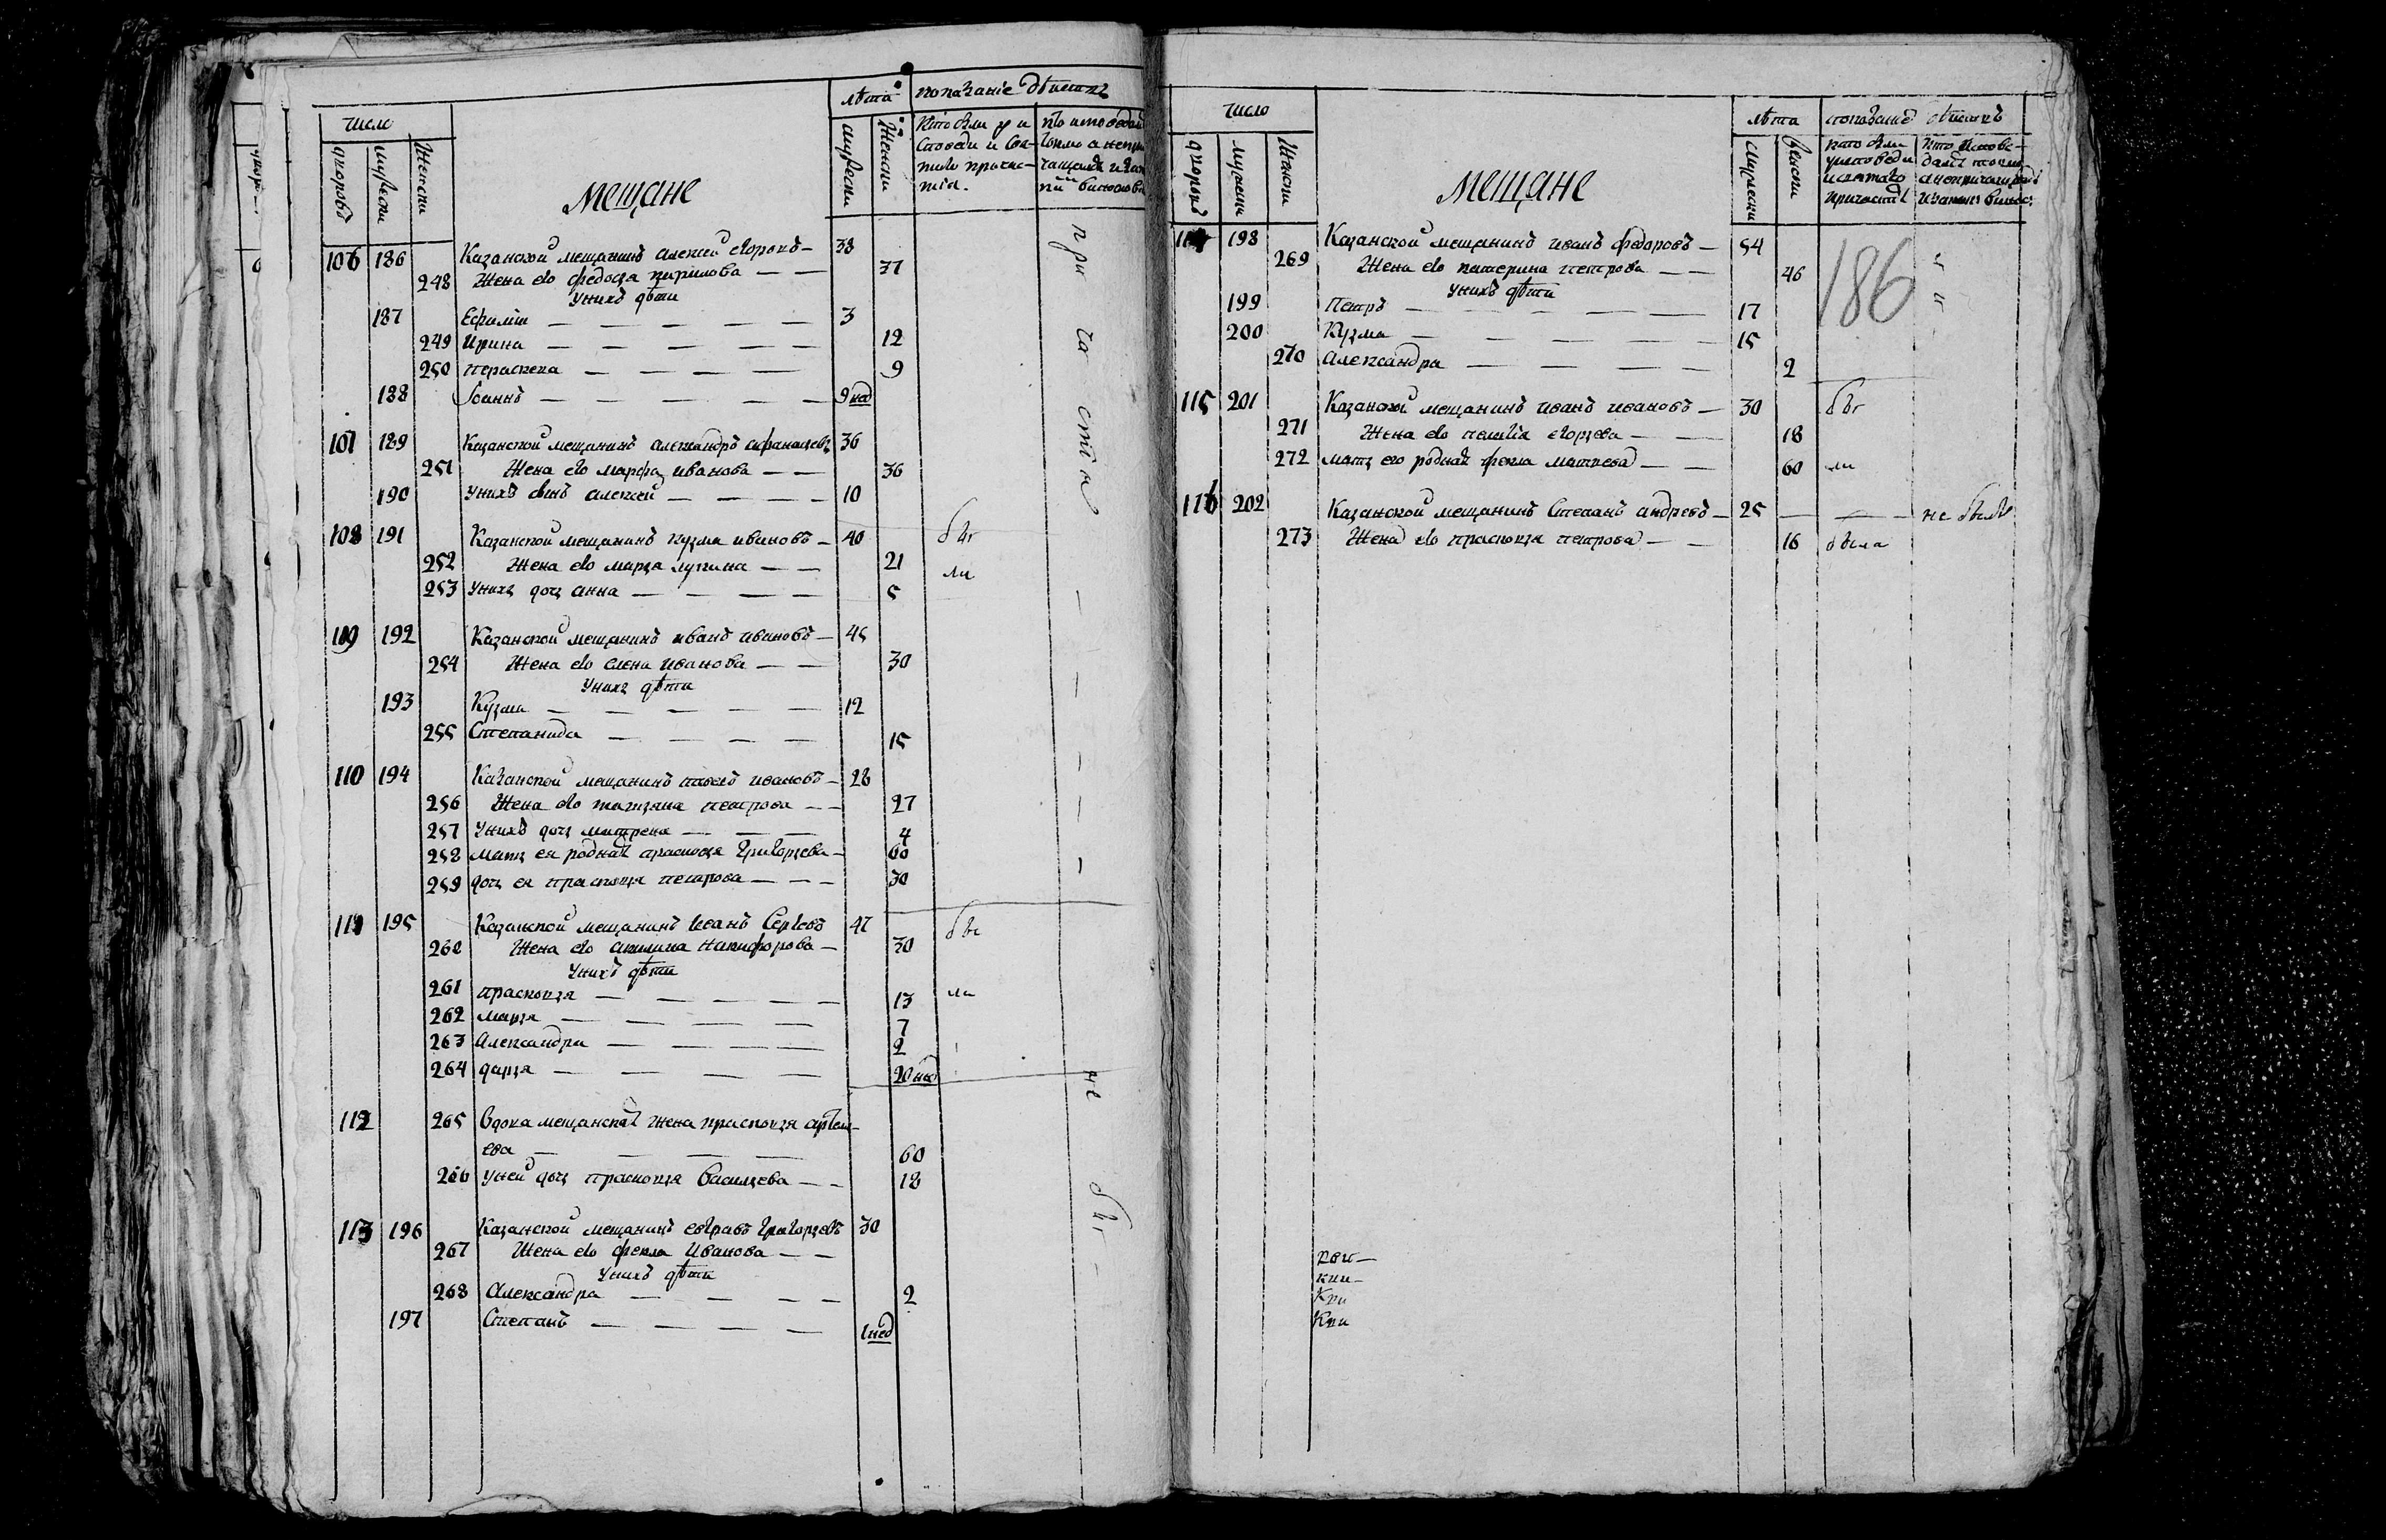 число
лѣта
показанiе дѣйств
дворовъ
мужеска
женска
Мещане
мужеска
женска
106 186 Казанской мещанинъ алексей егоровъ — 38
248 Жена его федосья кирилова — — 37
Унихъ дѣти
187 Ефимiи — — — — — 3
249 Ирина — — — — — 12
250 параскева — — — — 9
188 Iоаннъ — — — — — 9 нед
107 189 Казанской мещанинъ александръ афанасьевъ 36
251 Жена его марфа иванова — — 36
190 Унихъ сынъ алексей — — — — 10
108 191 Казанской мещанинъ кузма ивановъ — 40
252 Жена его марья лукина — — 21
253 Унихъ дочь анна — — — — 5
109 192 Казанской мещанинъ иванъ ивановъ — 45
254 Жена его елена иванова — — 30
Унихъ дѣти
193 Кузма — — — — — 12
255 Степанида — — — — 15
110 194 Казанской мещанинъ павелъ ивановъ — 28
256 Жена его татьяна петрова — — 27
257 Унихъ дочь матрена — — — 4
258 мать ея родная прасковья григорьева — 60
259 дочь ея прасковья петрова — — — 30
111 195 Казанской мещанинъ Иванъ Сергеевъ 47
260 Жена его акилина никифорова — 30
Унихъ дѣти
261 прасковья — — — — — 13
262 марья — — — — 7
263 Александра — — — — 2
264 дарья — — — — 20 нед
112 265 Вдова мещанская жена прасковья артем-
ева — — — — 60
266 Уней дочь прасковья Васильева — — 18
113 196 Казанской мещанинъ евграфъ григорьевъ 30
267 Жена его фекла Иванова — —
Унихъ дѣти
268 Александра — — — — 2
197 Степанъ — — — — 1 нед
бы
ли
бы
ли
при ча сти
не бы
число
лѣта
дворовъ
мужеска
женска
Мещане
мужеска
женска
198 Казанской мещанинъ иванъ федоровъ — 54
269 Жена его катерина петрова — — 46
Унихъ дѣти
199 Петръ — — — — — 17
200 Кузма — — — — — 15
270 Александра — — — — 2
186
115 201 Казанской мещанинъ иванъ ивановъ — 30 бы
271 Жена его пелагiя егорьева — — 18
272 мать его родная фекла матвеева — — 60 ли
116 202 Казанской мещанинъ Степанъ андреевъ — 25 — — не былъ
273 Жена его прасковья петрова — — 16 была